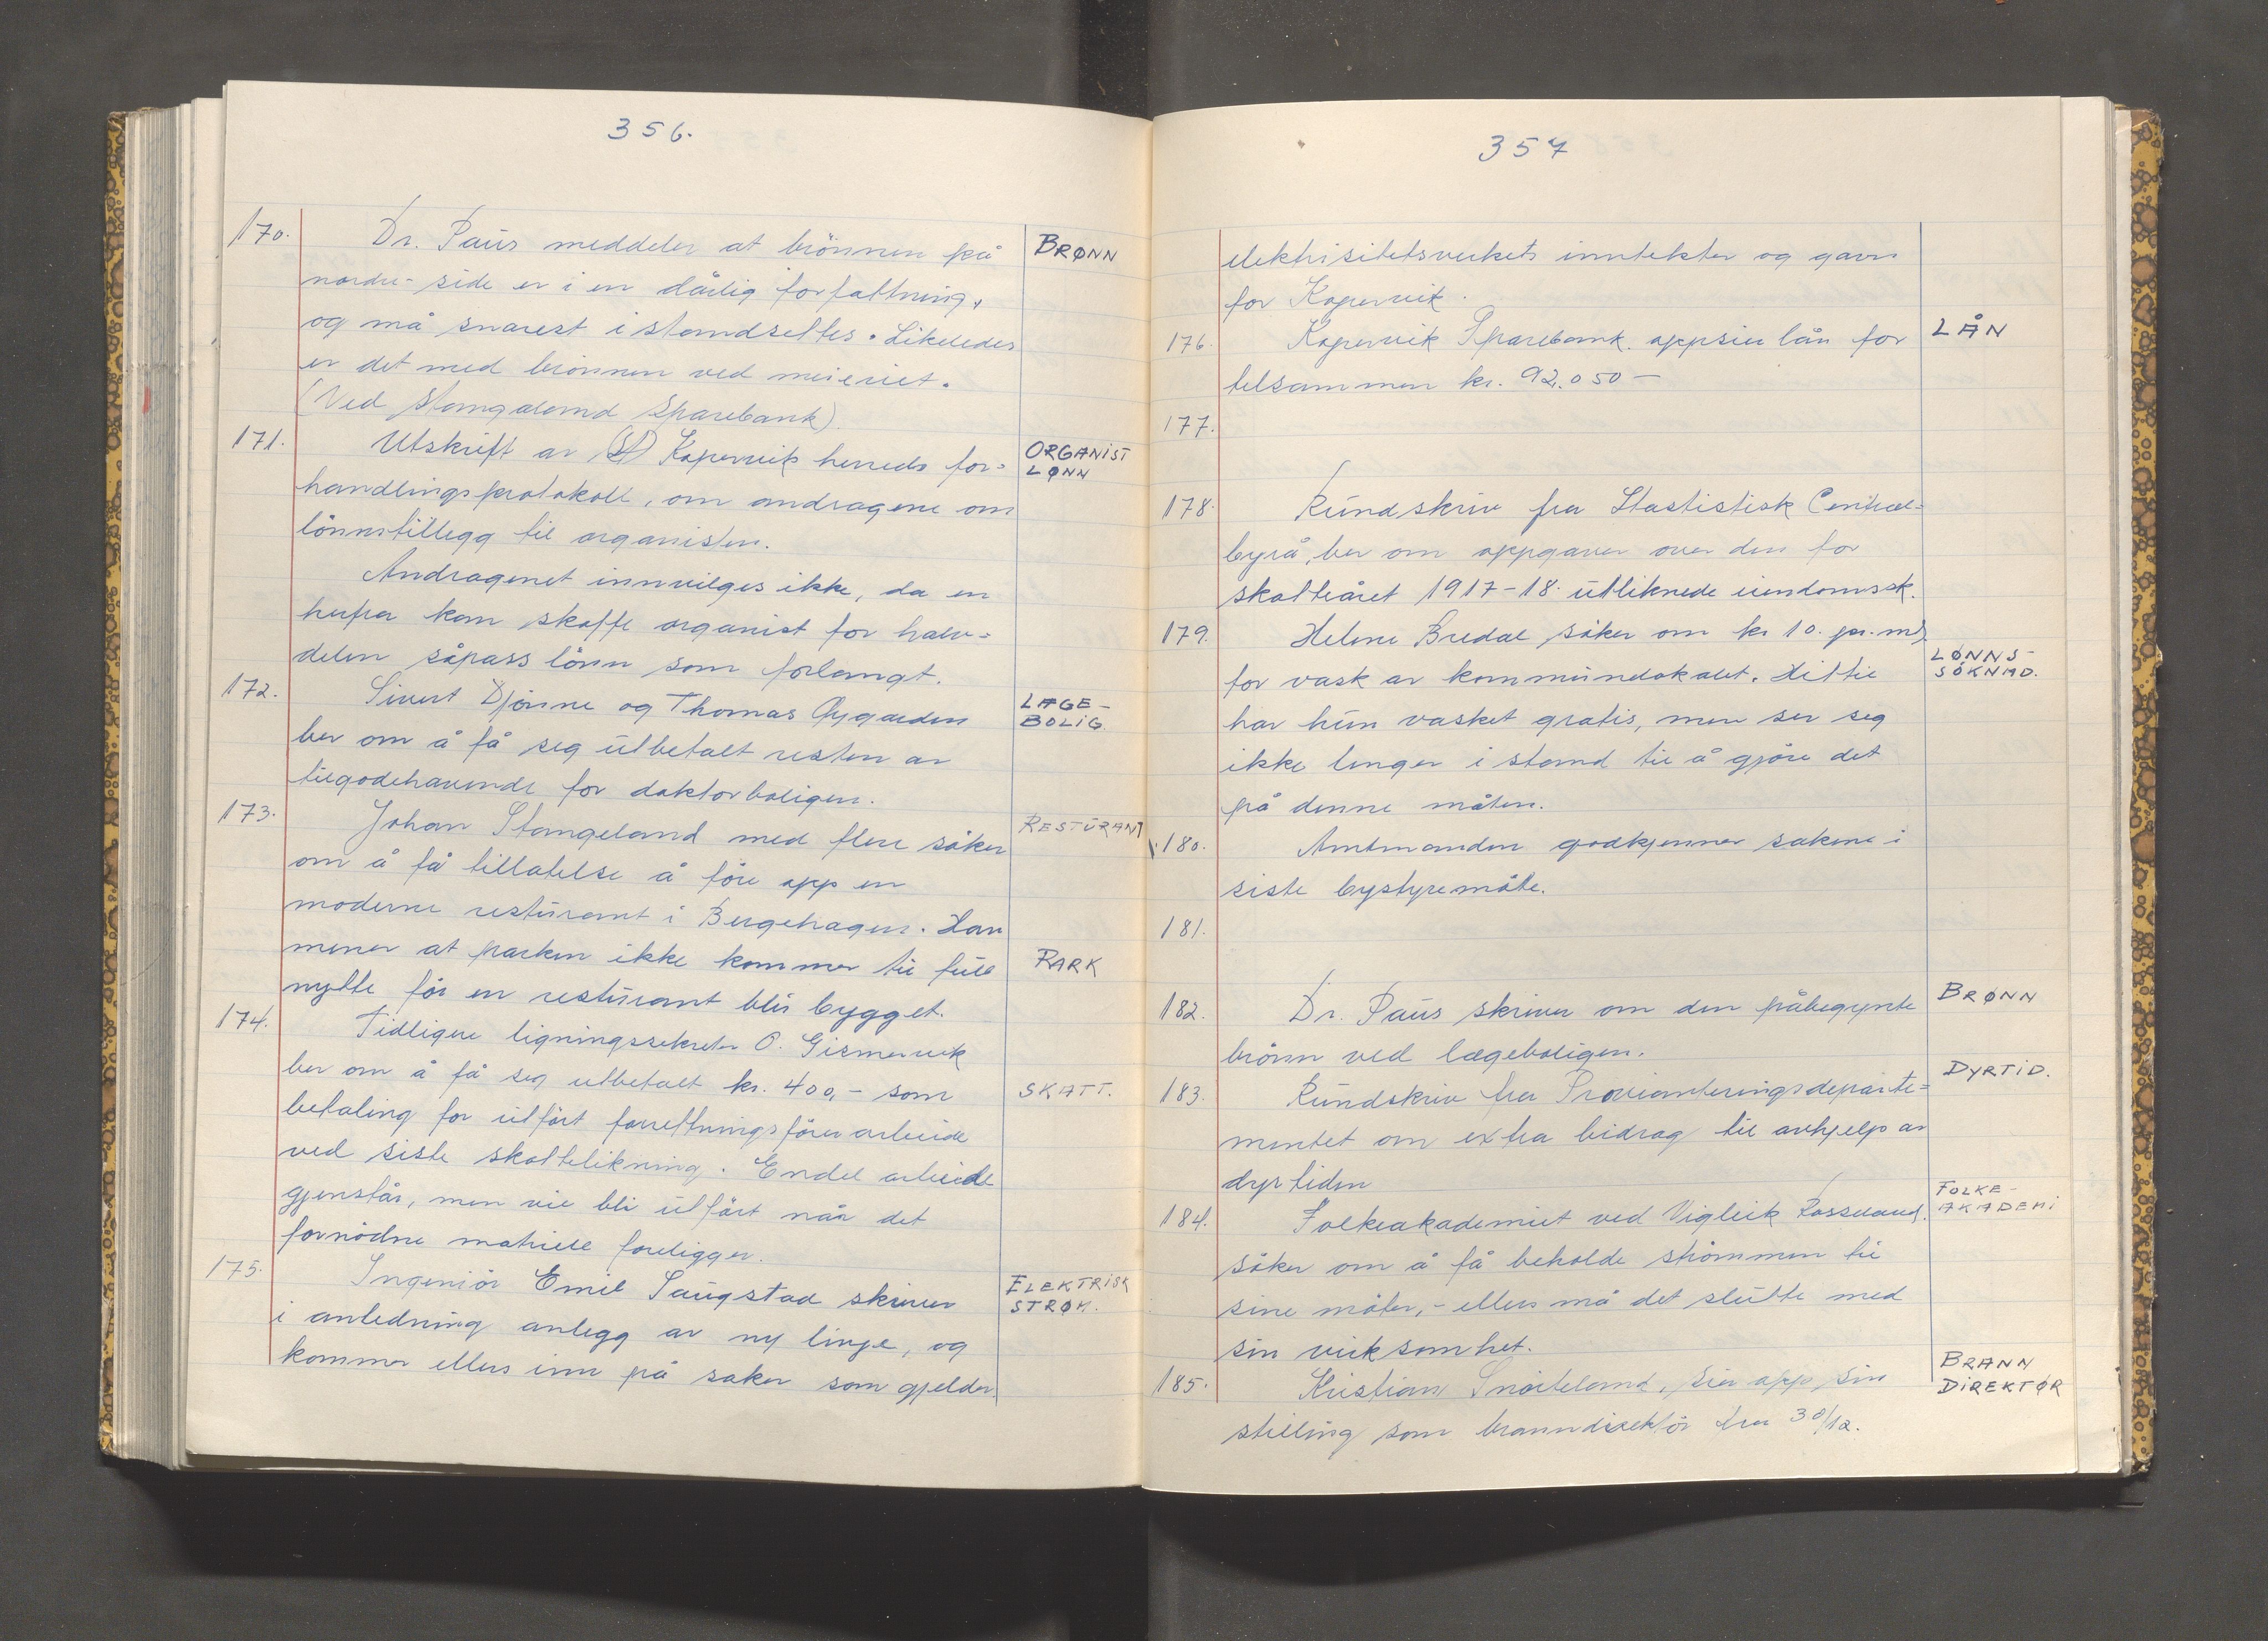 356.
170. Dr. Paus meddeler at brönnen på BRØNN
nordre-side er i en dårlig forfattning,
og må snarest i standsettes. Likeledes
er det med brönnen ved meieriet.
(Ved Stangeland Sparebank).
171. Utskrift av (St) Kopervik herreds for= ORGANIST
LØNN
handlingsprotokoll, om andragene om
lönnstillegg til organisten.
Andragenet innvilges ikke, da en
herfra kan skaffe organist for halv=
delen såpass lönn som forlangt.
172. Sivert Djönne og Thomas Øygarden LAGE-
BOLIG.
ber om å få seg utbetalt resten av
tilgodehavende for doktorboligen.
173. Johan Stangeland med flere söker RESTURANT
om å få tillatelse å före opp en
moderne resturant i Bergehagen. Han
mener at parken ikke kommer til full PARK
nytte för en resturant blir bygget.
174. Tidligere ligningssekretær O. Gismervik
ber om å få seg utbetalt kr. 400,- som SKATT.
betaling for utfört forrettningsförer arbeide
ved siste skattelikning. Endel arbeide
gjenstår, men vil bli utfört når det
fornödne matriell foreligger.
175. Ingeniör Emil Saugstad skriver ELEKTRISK
STRØM.
i anledning anlegg av ny linje, og
kommer ellers inn på saker som gjelder
357
elektrisitetsverkets inntekter og gavn
for Kopervik.
176. Kopervik Sparebank. oppsier lån for LÅN
tilsammen kr. 92.050-
177.
178. Rundskriv fra Stastistisk Central=
byrå, ber om oppgaver over den for
skatteåret 1917-18. utliknede eiendomssk.
179. Helene Bredal söker om kr 10. pr. md, LØNNS-
SØKNAD.
for vask av kommunelokalet. Hittil
har hun vasket gratis, men ser seg
ikke lenger i stand til å gjöre det
på denne måten.
180. Amtmanden godkjenner sakene i
siste bystyremöte.
181.
182. Dr. Paus skriver om den påbegynte BRØNN
brönn ved lægeboligen.
183. Rundskriv fra Provianteringsdeparte= DYRTID.
mentet om extra bidrag til avhjelp av
dyrtiden
184. Folkeakademiet ved Vigleik FOLKE-
AKADEMI
söker om å få beholde strömmen til
sine möter,- ellers må det slutte med
sin virksomhet.
185. Kristian Snörteland, sier opp sin BRANN
DIREKTØR
stilling som branndirektör fra 30/12.